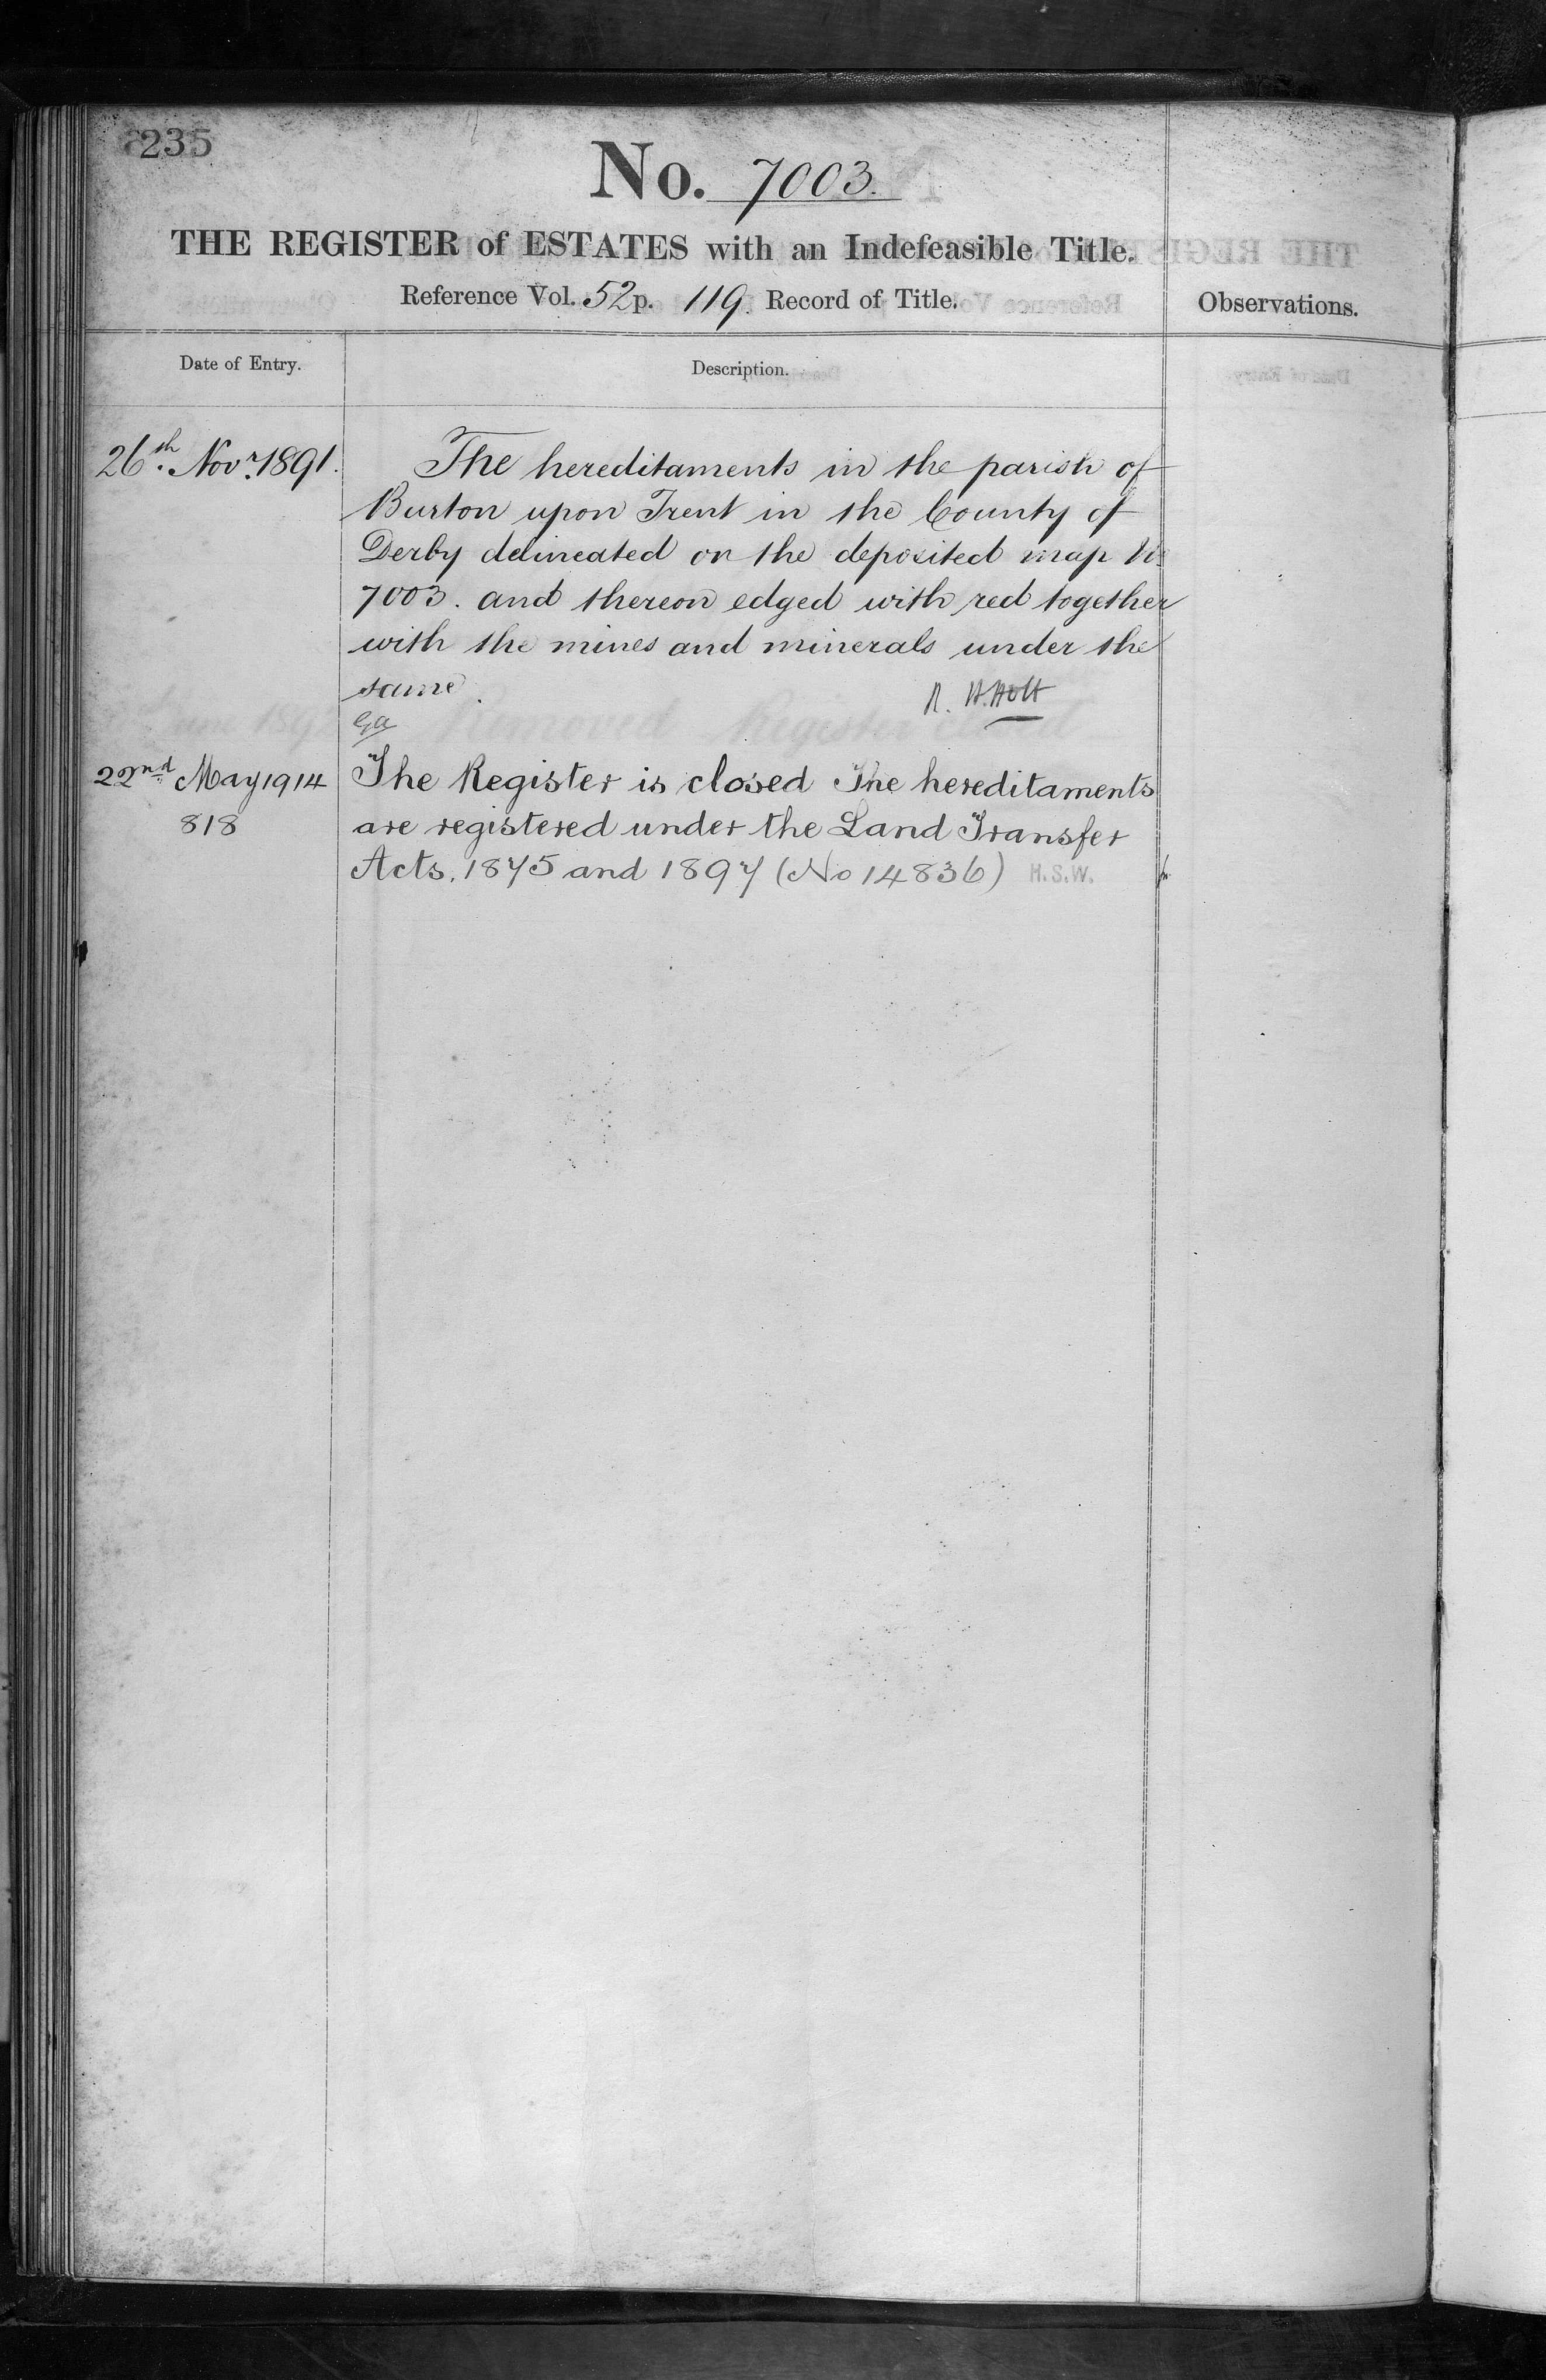 235
No. 7003.
THE REGISTER of ESTATES with an Indefeasible Title.
Reference Vol. 52 p. 119. Record of Title.
Observations.
Date of Entry.
Description.
26th. Novr. 1891.
The hereditaments in the parish of
Burton upon Trent in the County of
Derby delineated on the deposited map No.
7003. and thereon edged with red together
with the mines and minerals under the
same.
R. H. Holt
22nd May 1914
818
The Register is closed The hereditaments
are registered under the Land Transfer
Acts, 1875 and 1897 (No 14836) H.S.W.